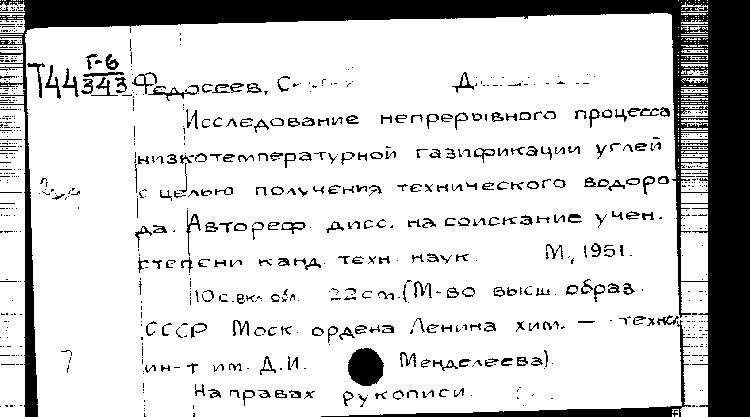 Г-6
Т44 343 Федосеев,
Исследование непрерывного процесса
низкотемпературной газификации углей
с целью получения технического водоро-
да. Автореф. дисс. на соискание учен.
степени канд. техн. наук. М., 1951.
10 с. вкл. обл. 22 см. (М-во высш. образ.
СССР Моск. ордена Ленина хим. — технол
ин-т им. Д.И. Менделеева).
7
На правах рукописи.